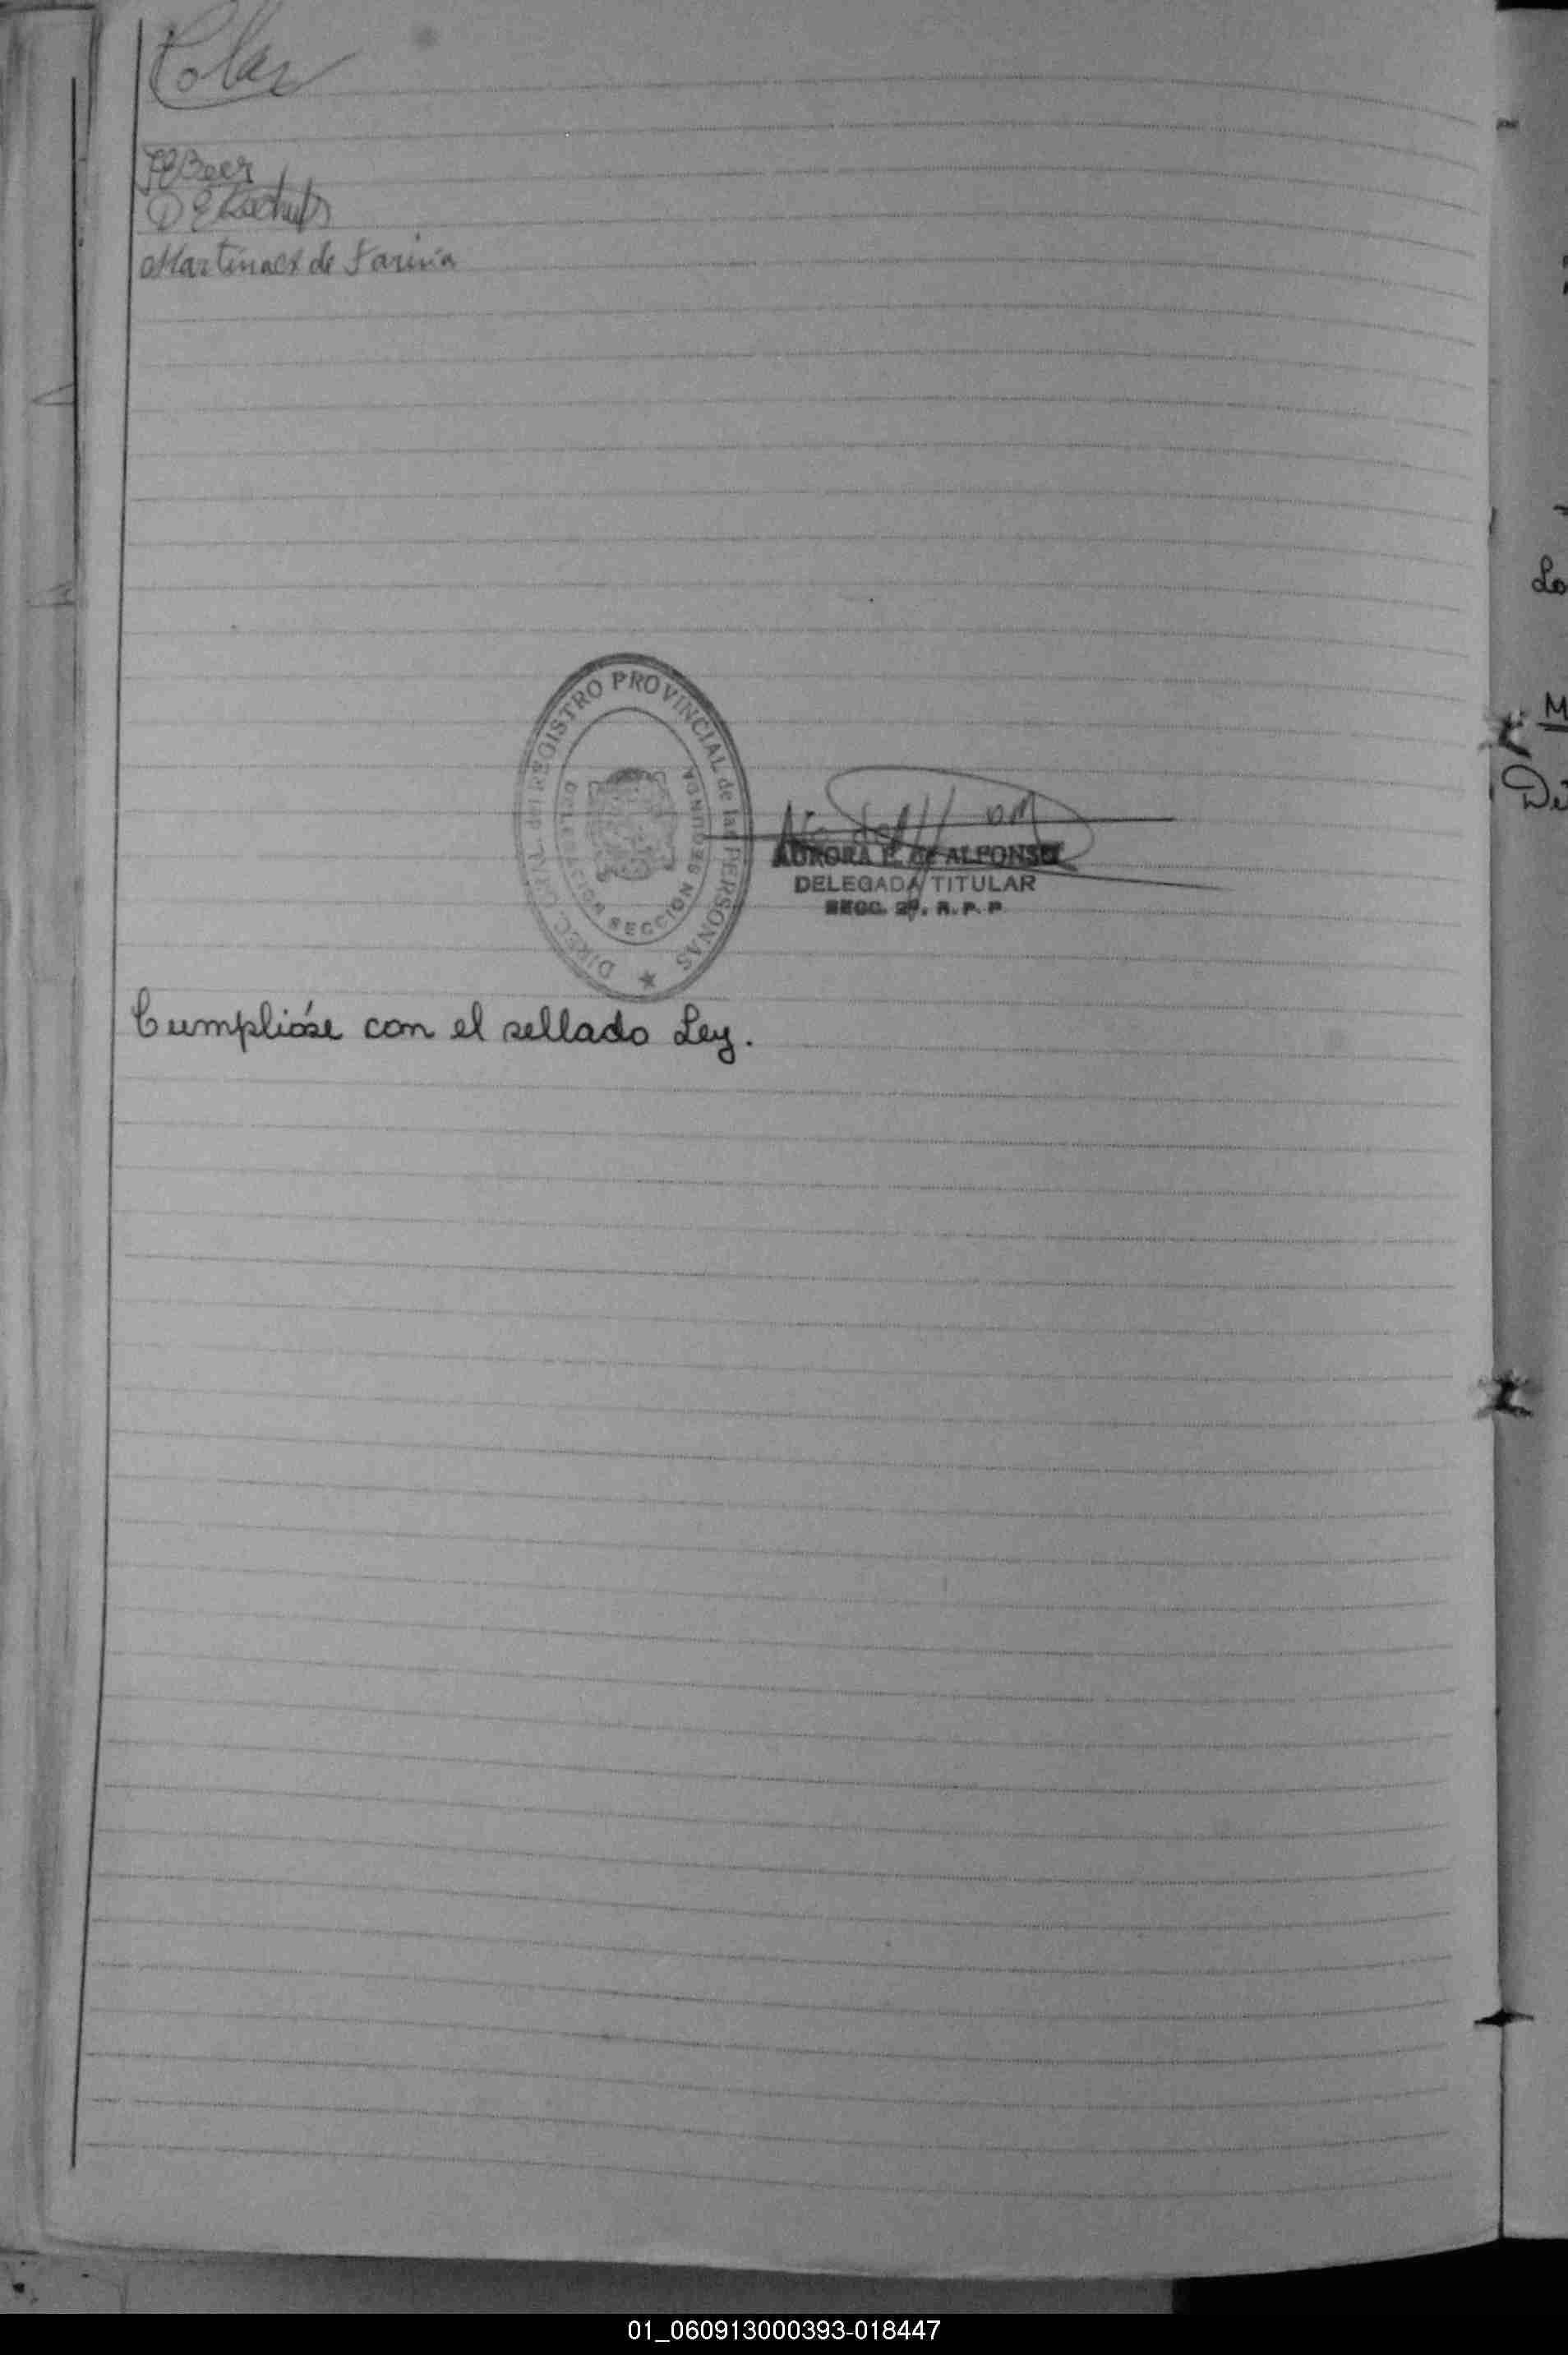 Beer
Martinaex de Fariña
DIREC. GRAL. del REGISTRO PROVINCIAL de las PERSONAS
DELEGACION SECCION SEGUNDA
AURORA de ALFONSO
DELEGADA TITULAR
SECC. 2ª. R. P. P.
Cumplióse con el sellado Ley.
Lo
M
Di
01_060913000393-018447